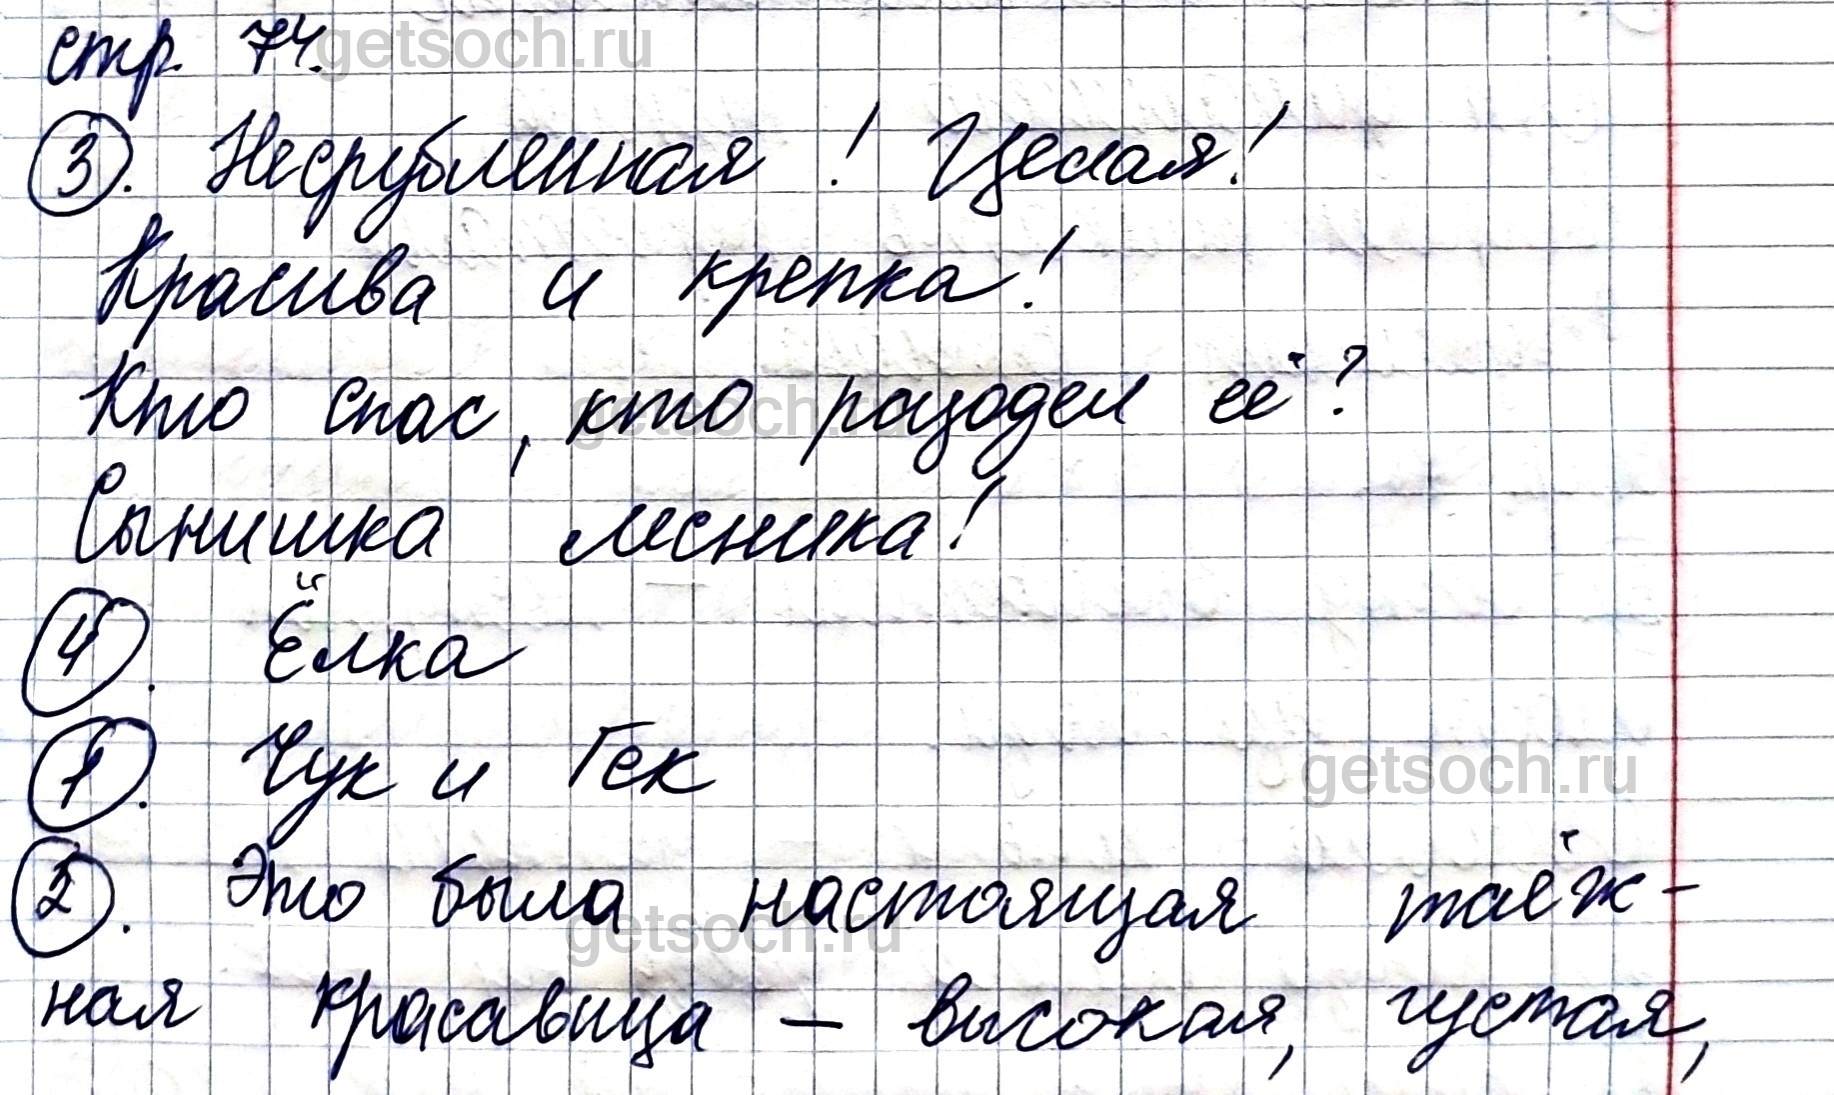 стр. 74. getsoch.ru
3. Несрубленная! Целая!
Красива и крепка!
Кто спас, кто разодел её?
getsoch.ru
Сынишка лесника!
4. Ёлка
1. Чук и Гек
getsoch.ru
2. Это была настоящая таёж-
getsoch.ru
ная красавица — высокая, густая,